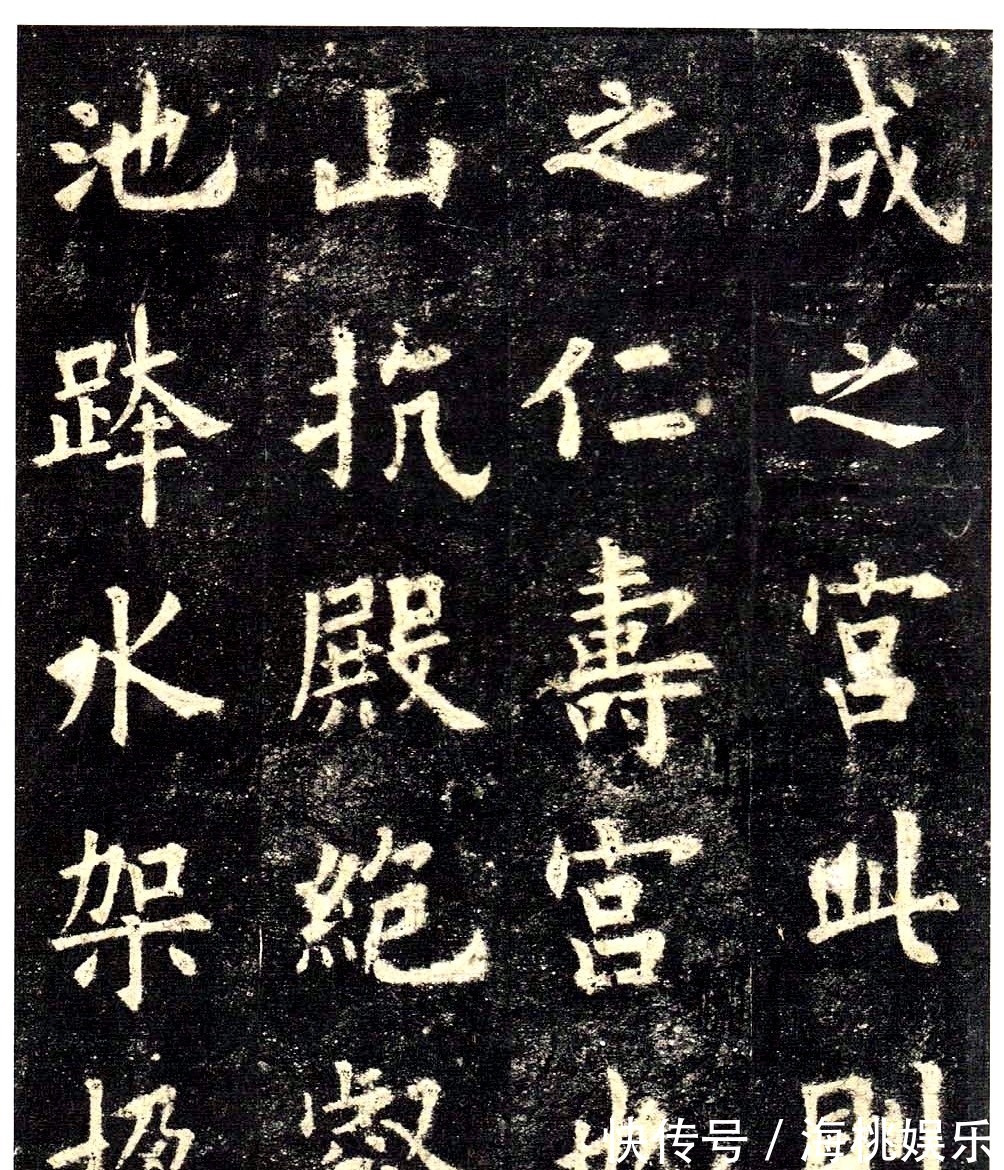 成之宮此則
之仁壽宮
山抗殿絕壑
池跨水架楹
快传号 / 海桃娱乐